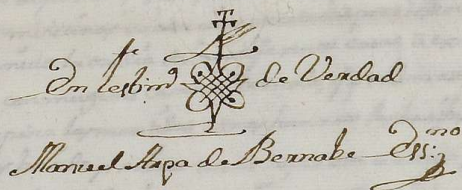 En testim.º de Verdad
Manuel Arpa de Bernabe Ess.no